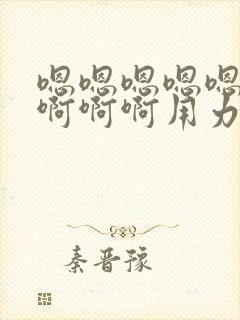 嗯嗯嗯嗯嗯
啊啊啊用力
秦晋豫